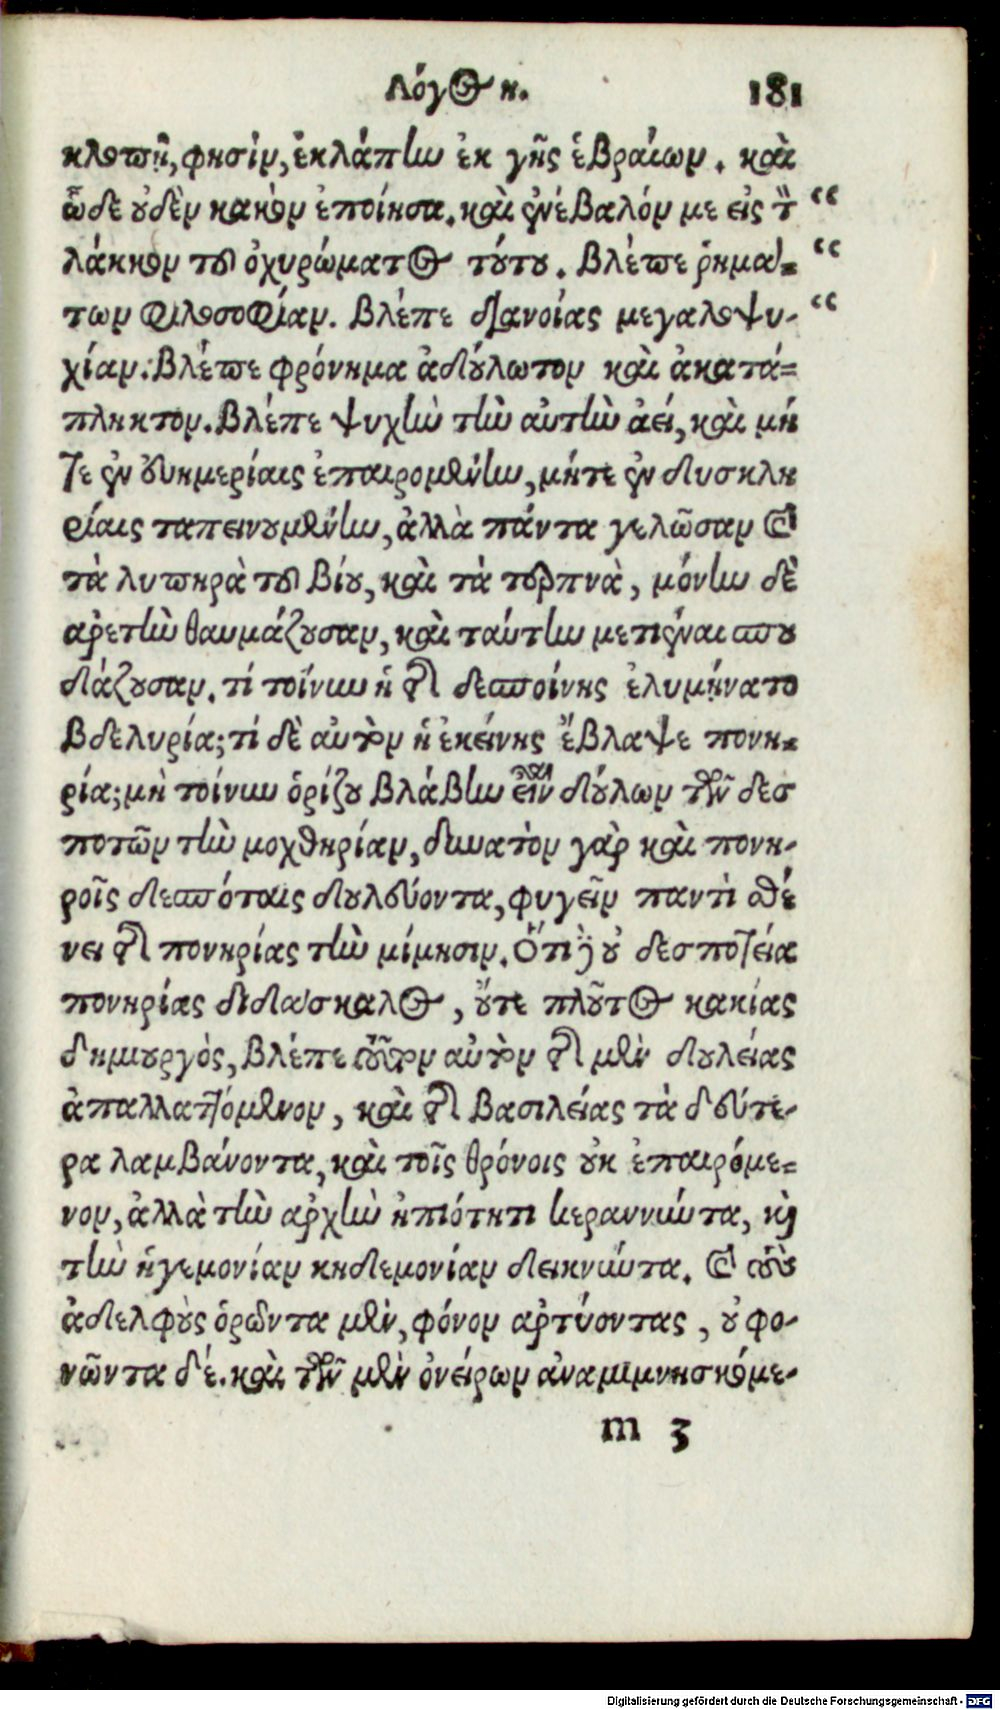 Λόγος η. 181
κλοπῇ, φησὶν, ἐκλάπην ἐκ γῆς ἑβραίων. καὶ
ὧδε οὐδὲν κακὸν ἐποίησα. καὶ ἐνέβαλόν με εἰς τ̀ “
λάκκον τοῦ ὀχυρώματος τούτου. Βλέπε ῥημά- “
των φιλοσοφίαν. Βλέπε διανοίας μεγαλοψυ- “
χίαν. Βλέπε φρόνημα ἀδούλωτον καὶ ἀκατά-
πληκτον. Βλέπε ψυχὴν τὴν αὐτὴν ἀεί, καὶ μή
τε ἐν εὐημερίαις ἐπαιρομένην, μήτε ἐν δυσκλη
ρίαις ταπεινουμένην, ἀλλὰ πάντα γελῶσαν καὶ
τὰ λυπηρὰ τοῦ βίου, καὶ τὰ τερπνὰ, μόνην δὲ
ἀρετὴν θαυμάζουσαν, καὶ ταύτην μετιέναι σπου
δάζουσαν. τί τοίνυν ἡ τῆς δεσποίνης ἐλυμήνατο
βδελυρία; τί δὲ αὐτὸν ἡ ἐκείνης ἔβλαψε πονη-
ρία; μὴ τοίνυν ὁρίζου βλάβην εἶναι δούλων τῶν δεσ
ποτῶν τὴν μοχθηρίαν, δυνατὸν γὰρ καὶ πονη-
ροῖς δεσπόταις δουλεύοντα, φυγεῖν παντὶ σθέ
νει τῆς πονηρίας τὴν μίμησιν. Ὅτι δὲ οὐ δεσποτεία
πονηρίας διδάσκαλος, οὔτε πλοῦτος κακίας
δημιουργὸς, βλέπε τοῦτον αὐτὸν τῆς μὲν δουλείας
ἀπαλλαττόμενον, καὶ τῆς βασιλείας τὰ δεύτε-
ρα λαμβάνοντα, καὶ τοῖς θρόνοις οὐκ ἐπαιρόμε-
νον, ἀλλὰ τὴν ἀρχὴν ἠπιότητι κεραννύντα, καὶ
τὴν ἡγεμονίαν κηδεμονίαν δεικνύντα. καὶ τοὺς
ἀδελφοὺς ὁρῶντα μὲν, φόνον ἀρτύοντας, οὐ φο-
νῶντα δέ. καὶ τῶν μὲν ὀνείρων ἀναμιμνησκόμε-
m 3
Digitalisierung gefördert durch die Deutsche Forschungsgemeinschaft - DFG